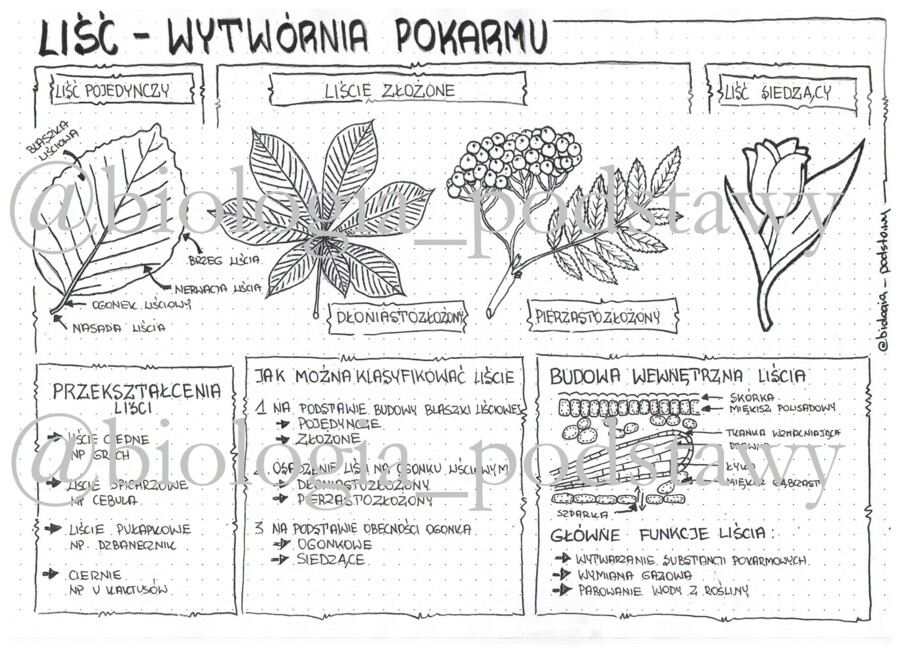 LIŚĆ - WYTWÓRNIA POKARMU
LIŚĆ POJEDYNCZY
LIŚCIE ZŁOŻONE
LIŚĆ SIEDZĄCY
BLASZKA
LIŚCIOWA
BRZEG LIŚCIA
NERWACJA LIŚCIA
OGONEK LIŚCIOWY
NASADA LIŚCIA
DŁONIASTOZŁOŻONY
PIERZASTOZŁOŻONY
@biologia_podstawy
@biologia_podstawy
PRZEKSZTAŁCENIA
LIŚCI
LIŚCIE CZEPNE
NP. GROCH
LIŚCIE SPICHRZOWE
NP CEBULA
LIŚCIE PUŁAPKOWE
NP. DZBANECZNIK
CIERNIE
NP U KAKTUSÓW
JAK MOŻNA KLASYFIKOWAĆ LIŚCIE
1 NA PODSTAWIE BUDOWY BLASZKI LIŚCIOWEJ
POJEDYNCZE
ZŁOŻONE
2. OSADZENIE LIŚCI NA OGONKU LIŚCIOWYM
DŁONIASTOZŁOŻONY
PIERZASTOZŁOŻONY
3 NA PODSTAWIE OBECNOŚCI OGONKA
OGONKOWE
SIEDZĄCE
BUDOWA WEWNĘTRZNA LIŚCIA
SKÓRKA
MIĘKISZ PALISADOWY
TKANKA WZMACNIAJĄCA
DREWNO
ŁYKO
MIĘKISZ GĄBCZASTY
SZPARKA
GŁÓWNE FUNKCJE LIŚCIA:
WYTWARZANIE SUBSTANCJI POKARMOWYCH.
WYMIANA GAZOWA
PAROWANIE WODY Z ROŚLINY
@biologia_podstawy